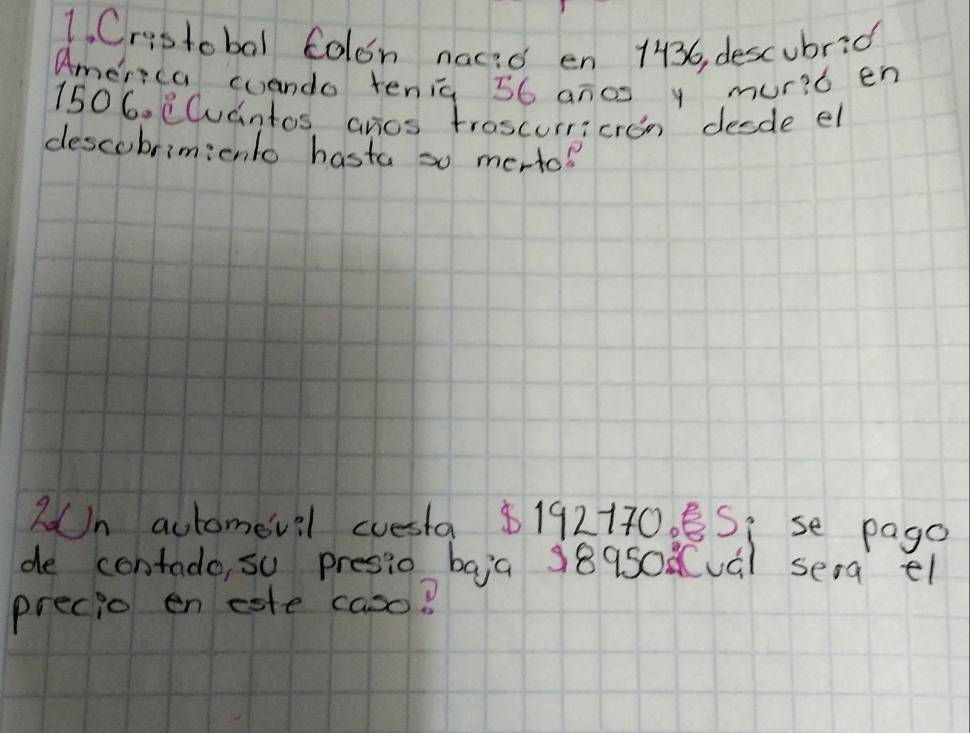 1. Cristobal Colón nació en 1436, descubrió
América cuando tenia 56 años y murió en
1506. ¿Cuántos años trascurrierón desde el
descubrimiento hasta su merto?
2. Un automóvil cuesta $192770. Si se pago
de contado, su presio baja $8950 ¿Cuál sera el
precio en este caso?